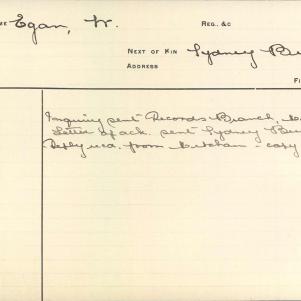 ME Egan, W. REG. &C
NEXT OF KIN Sydney Bu
ADDRESS
FI
Inquiry sent Records Branch,
Letter of ack. sent Sydney Bu
Reply recd. from Mitcham - copy